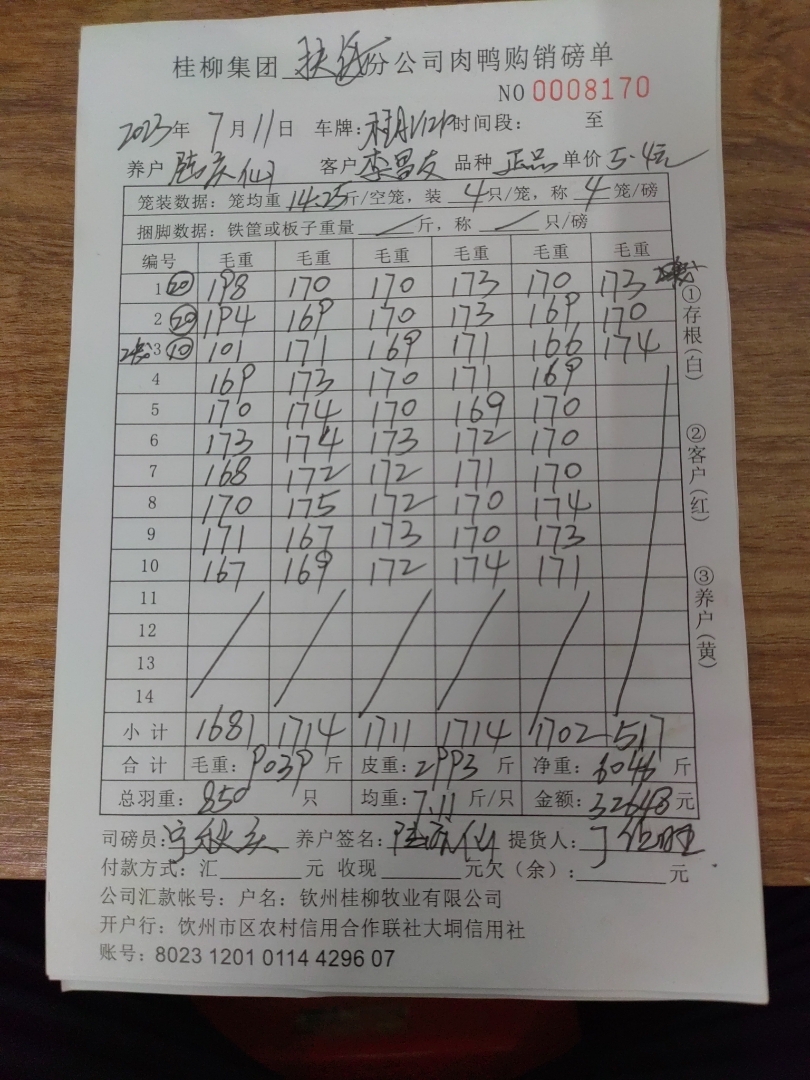 桂柳集团 扶绥 份公司肉鸭购销磅单
NO 0008170
2023年 7月11日 车牌: 时间段: 至
养户 陆庆仙 客户 李昌友 品种 正品 单价 5.4元
笼装数据：笼均重 14.25斤/空笼，装 4只/笼，称 4笼/磅
捆脚数据：铁筐或板子重量 斤，称 只/磅
编号 毛重 毛重 毛重 毛重 毛重 毛重
1 20 198 170 170 173 170 173
2 20 194 169 170 173 169 170
3 10 101 171 169 171 166 174
4 169 173 170 171 169
5 170 174 170 169 170
6 173 174 173 172 170
7 168 172 172 171 170
8 170 175 172 170 174
9 171 167 173 170 173
10 167 169 172 174 171
11
12
13
14
小计 1681 1714 1711 1714 1702 517
合计 毛重：9039斤 皮重：2993斤 净重：6046斤
总羽重：850只 均重：7.11斤/只 金额：32648元
司磅员： 养户签名：陆庆仙 提货人：
付款方式：汇 元 收现 元欠（余）： 元
公司汇款帐号：户名：钦州桂柳牧业有限公司
开户行：饮州市区农村信用合作联社大垌信用社
账号：8023 1201 0114 4296 07
①存根(白)
②客户(红)
③养户(黄)